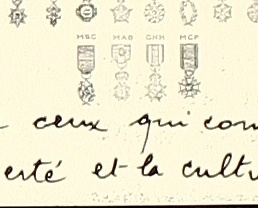 MSC MAB GNH MCP
ceux qui com
erté et la cultu